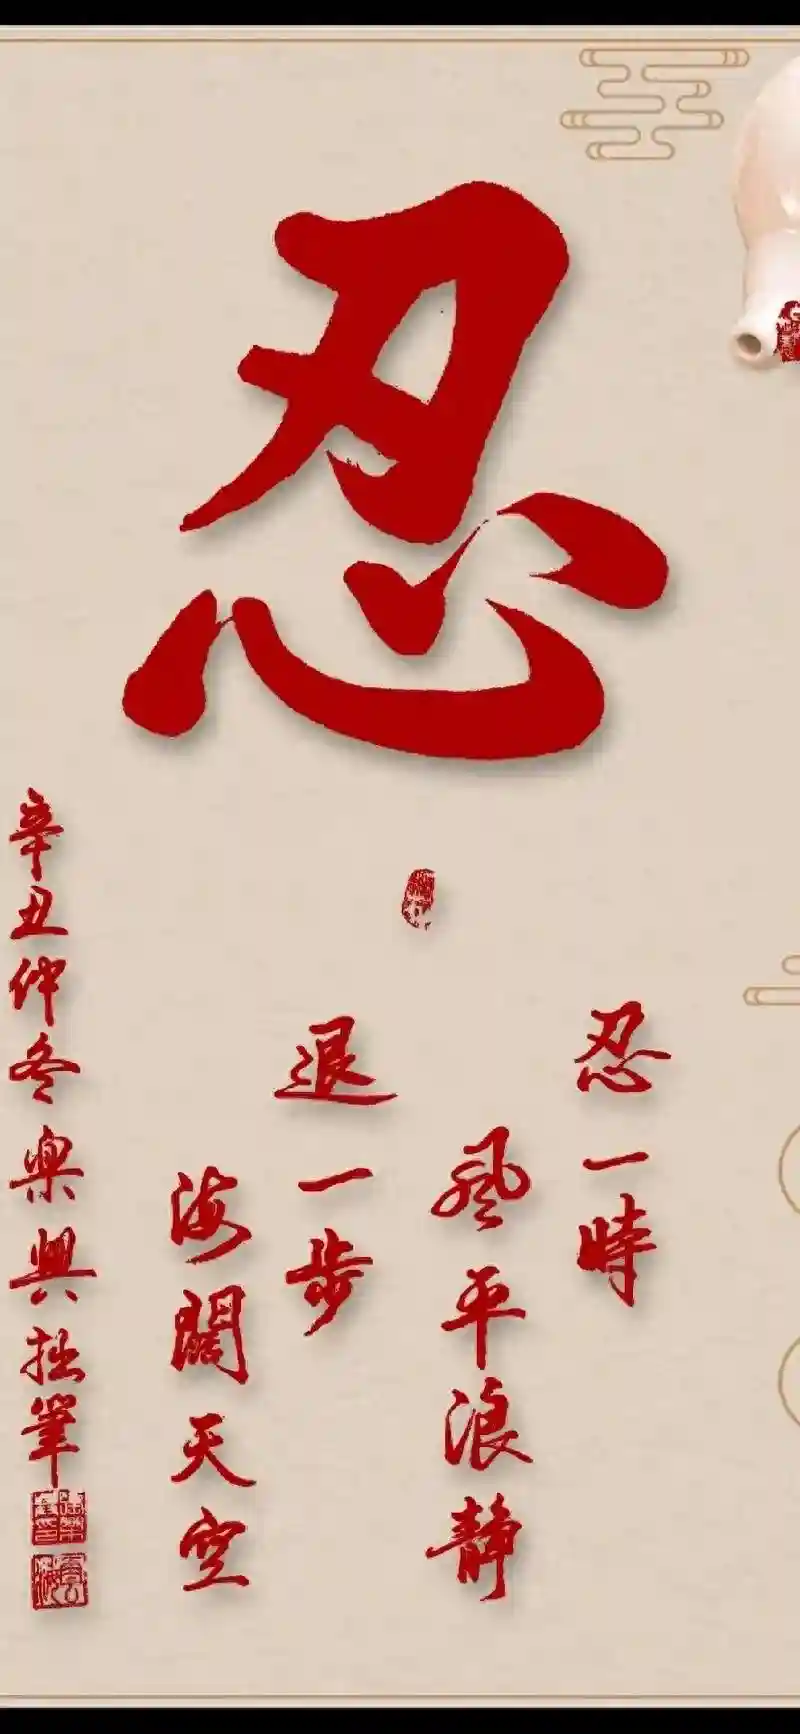 忍
忍一時
風平浪静
退一步
海闊天空
辛丑仲冬樂興拙筆